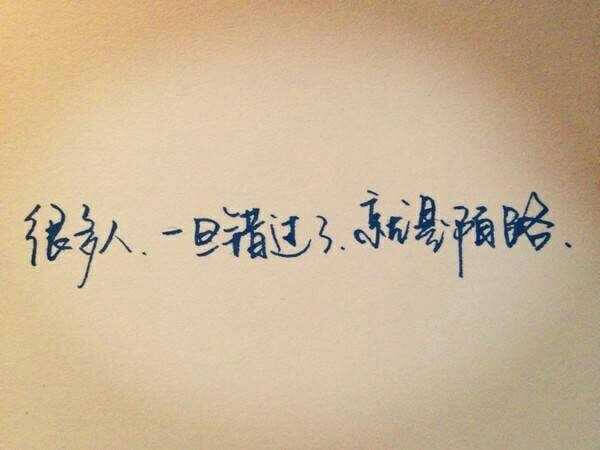 很多人、一旦错过了、就是陌路、